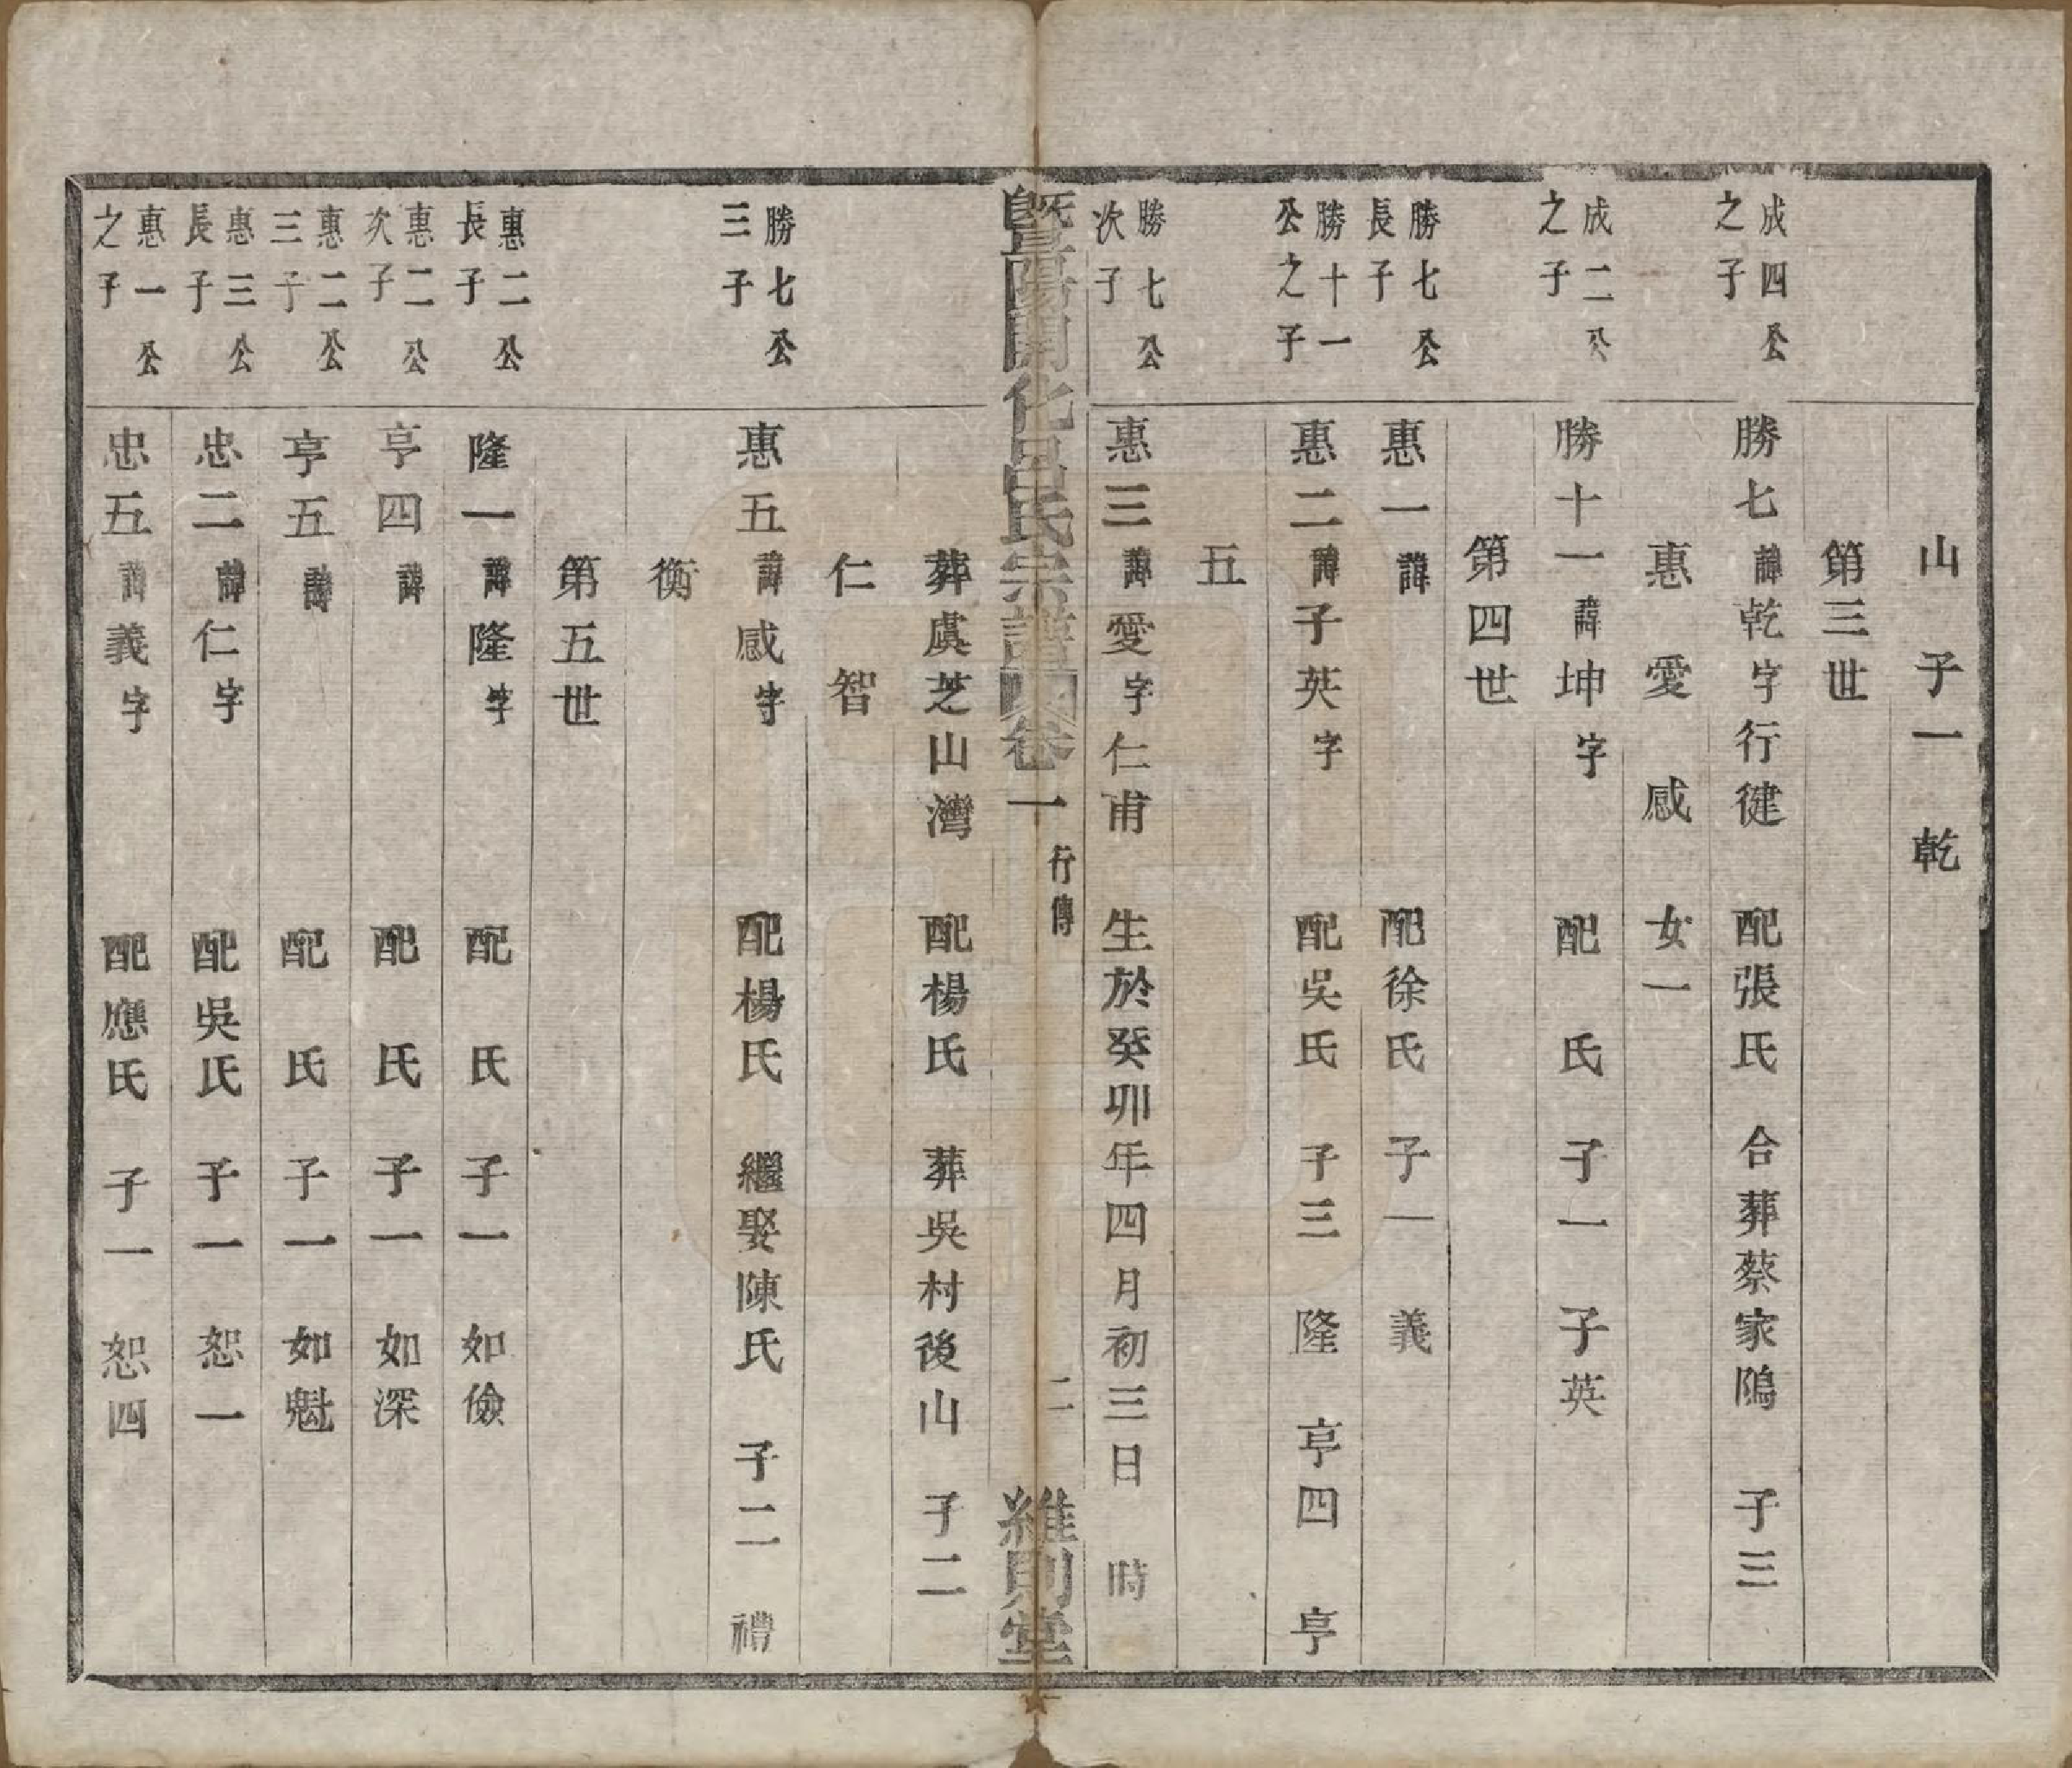 山　子一　乾
第三世
成四公之子
勝七諱乾字行健　配張氏　合葬蔡家隝　子三
惠　愛　感　女一
成二公之子
勝十一諱坤字　配　氏　子一　子英
第四世
勝七公長子
惠一諱　配徐氏　子一　義
勝十一公之子
惠二諱子英字　配吳氏　子三　隆　亨四　亨
五
勝七公次子
惠三諱愛字仁甫　生於癸卯年四月初三日　時
暨陽開化呂氏宗譜卷一　行傳　二　維則堂
葬虞芝山灣　配楊氏　葬吳村後山　子二
仁　智
勝七公三子
惠五諱感字　配楊氏　繼娶陳氏　子二　禮
衡
第五世
惠二公長子
隆一諱隆字　配　氏　子一　如儉
惠二公次子
亨四諱　配　氏　子一　如深
惠二公三子
亨五諱　配　氏　子一　如魁
惠三公長子
忠二諱仁字　配吳氏　子一　恕一
惠一公之子
忠五諱義字　配應氏　子一　恕四